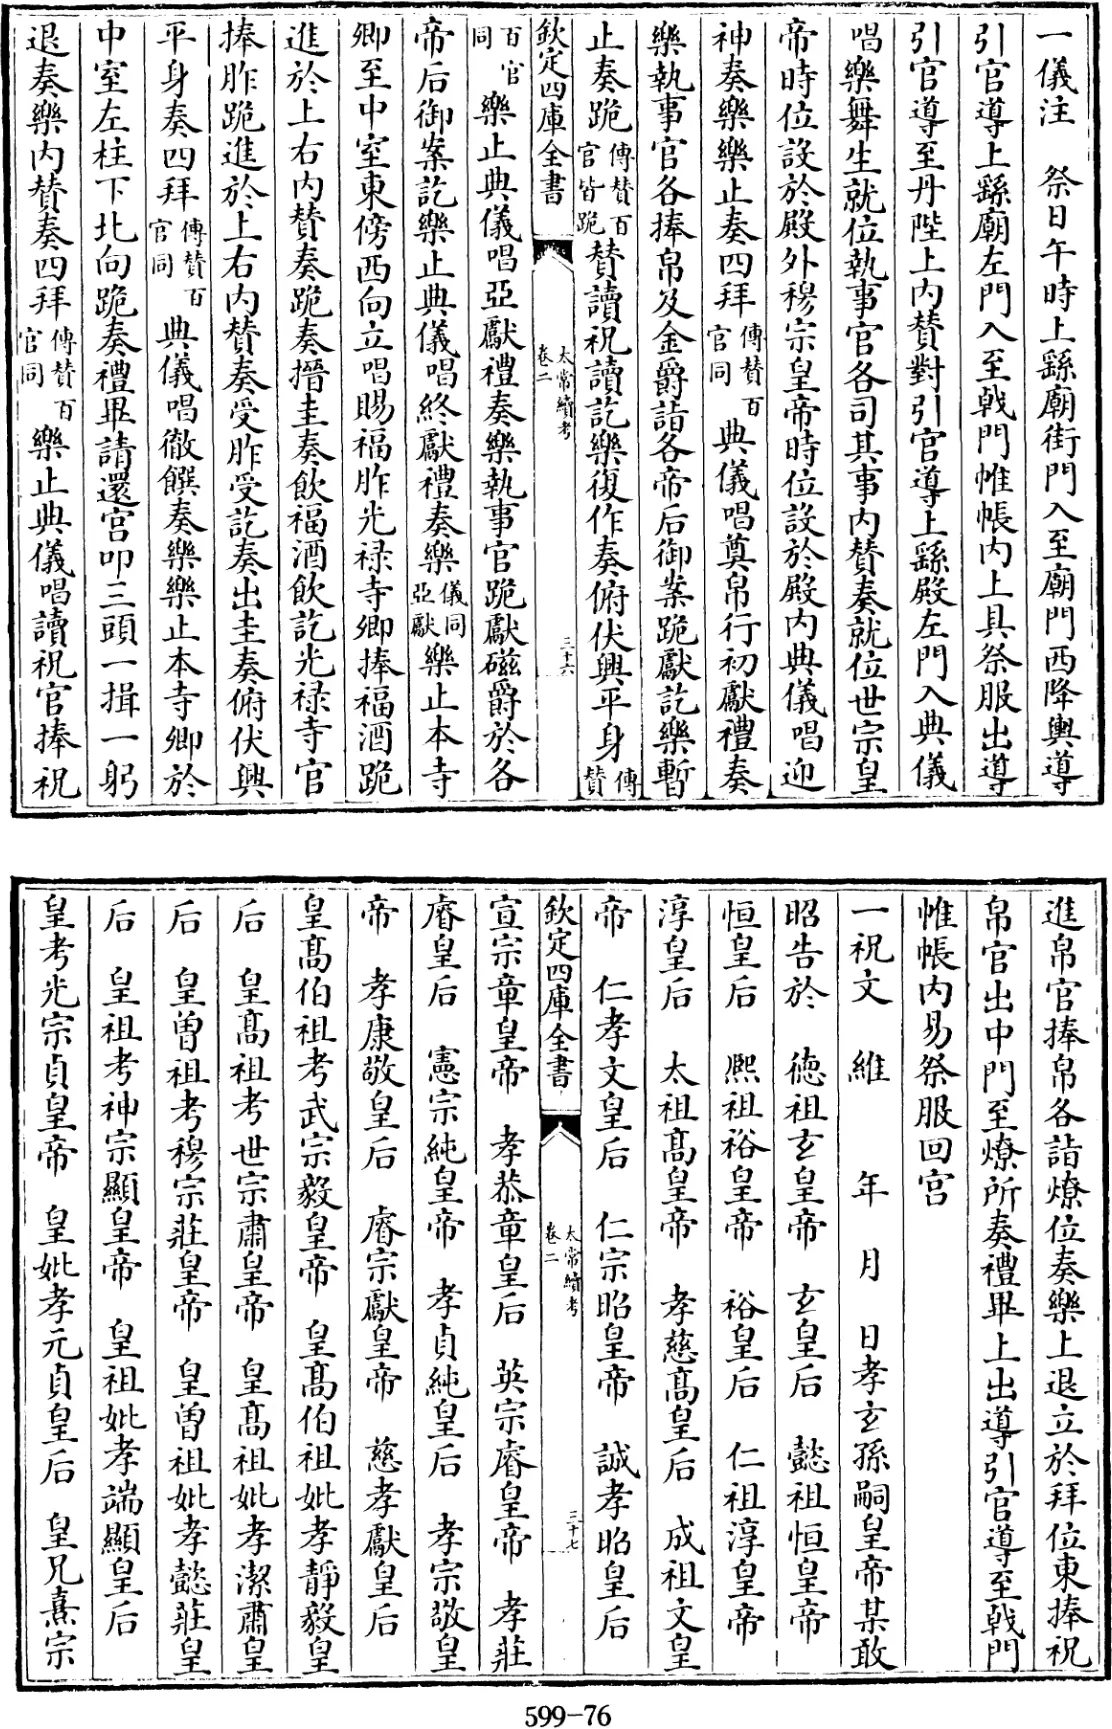 一儀注　祭日午時上繇廟街門入至廟門西降輿導
引官導上繇廟左門入至戟門帷帳内上具祭服出導
引官導至丹陛上内賛對引官導上繇殿左門入典儀
唱樂舞生就位執事官各司其事内賛奏就位世宗皇
帝時位設於殿外穆宗皇帝時位設於殿内典儀唱迎
神奏樂樂止奏四拜傳賛百官同典儀唱奠帛行初獻禮奏
樂執事官各捧帛及金爵詣各帝后御案跪獻訖樂暫
止奏跪傳賛百官皆跪賛讀祝讀訖樂復作奏俯伏興平身傳賛
欽定四庫全書
太常續考
卷二
三十六
百官同樂止典儀唱亞獻禮奏樂執事官跪獻磁爵於各
帝后御案訖樂止典儀唱終獻禮奏樂儀同亞獻樂止本寺
卿至中室東傍西向立唱賜福胙光禄寺卿捧福酒跪
進於上右内賛奏跪奏搢圭奏飲福酒飲訖光禄寺官
捧胙跪進於上右内賛奏受胙受訖奏出圭奏俯伏興
平身奏四拜傳賛百官同典儀唱徹饌奏樂樂止本寺卿於
中室左柱下北向跪奏禮畢請還宫叩三頭一揖一躬
退奏樂内賛奏四拜傳賛百官同樂止典儀唱讀祝官捧祝
進帛官捧帛各詣燎位奏樂上退立於拜位東捧祝
帛官出中門至燎所奏禮畢上出導引官導至戟門
帷帳内易祭服回宫
一祝文　維　年　月　日孝玄孫嗣皇帝某敢
昭告於　德祖玄皇帝　玄皇后　懿祖恒皇帝
恒皇后　熙祖裕皇帝　裕皇后　仁祖淳皇帝
淳皇后　太祖髙皇帝　孝慈髙皇后　成祖文皇
帝　仁孝文皇后　仁宗昭皇帝　誠孝昭皇后
欽定四庫全書
太常續考
卷二
三十七
宣宗章皇帝　孝恭章皇后　英宗睿皇帝　孝莊
睿皇后　憲宗純皇帝　孝貞純皇后　孝宗敬皇
帝　孝康敬皇后　睿宗獻皇帝　慈孝獻皇后
皇髙伯祖考武宗毅皇帝　皇髙伯祖妣孝靜毅皇
后　皇髙祖考世宗肅皇帝　皇髙祖妣孝潔肅皇
后　皇曾祖考穆宗莊皇帝　皇曾祖妣孝懿莊皇
后　皇祖考神宗顯皇帝　皇祖妣孝端顯皇后
皇考光宗貞皇帝　皇妣孝元貞皇后　皇兄熹宗
599-76